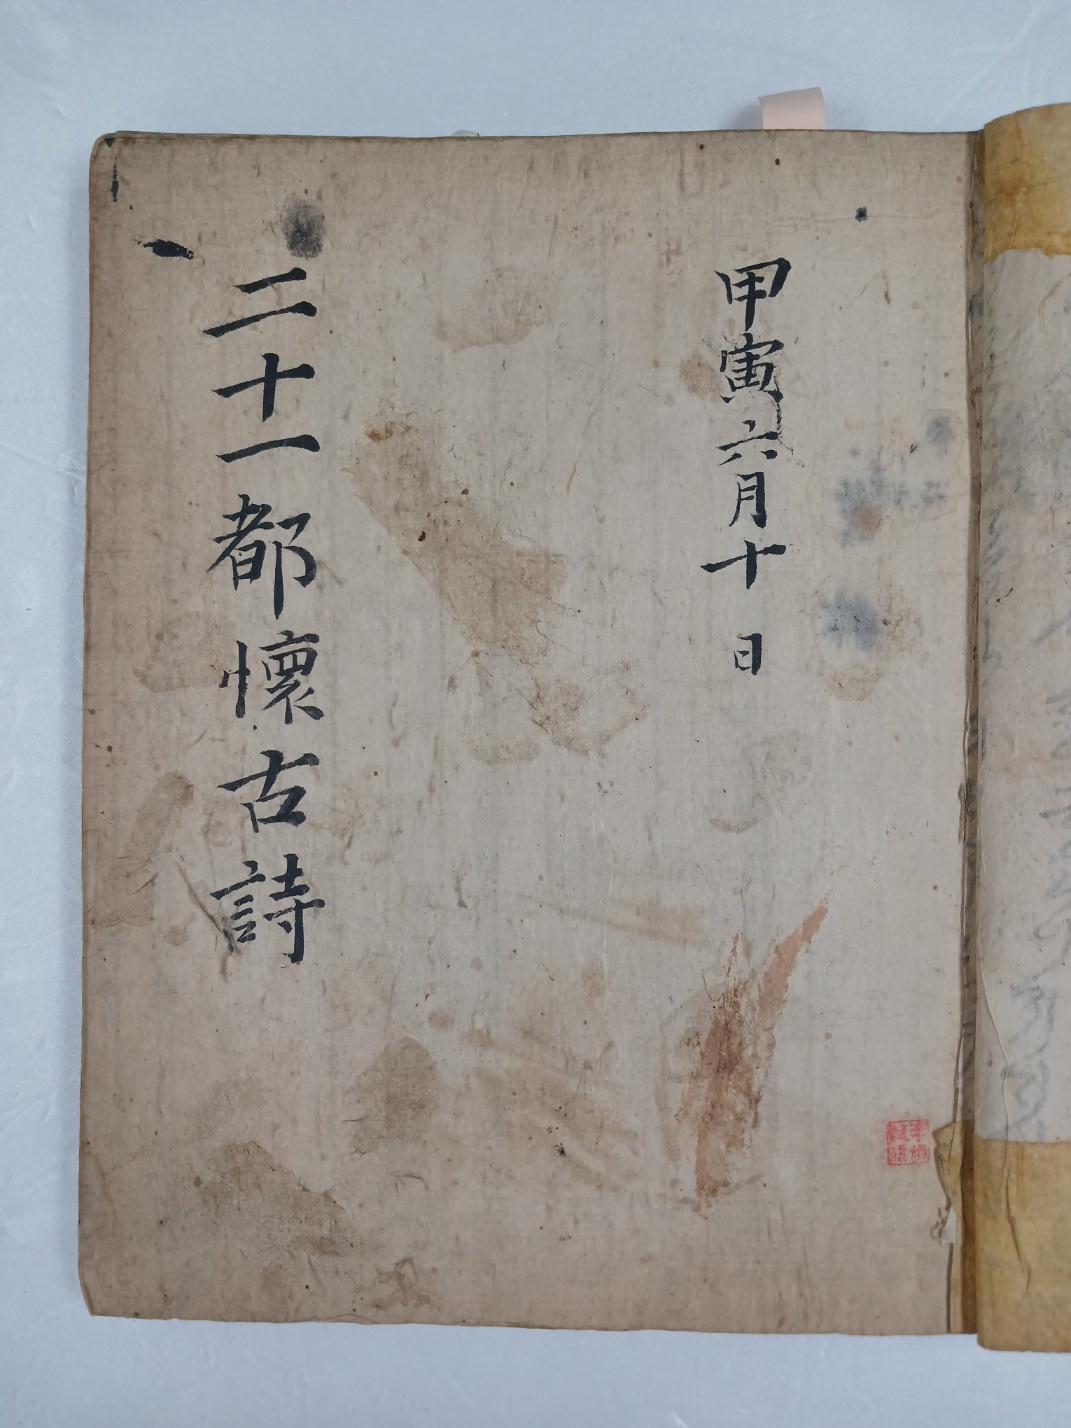 甲寅六月十日
二十一都懷古詩